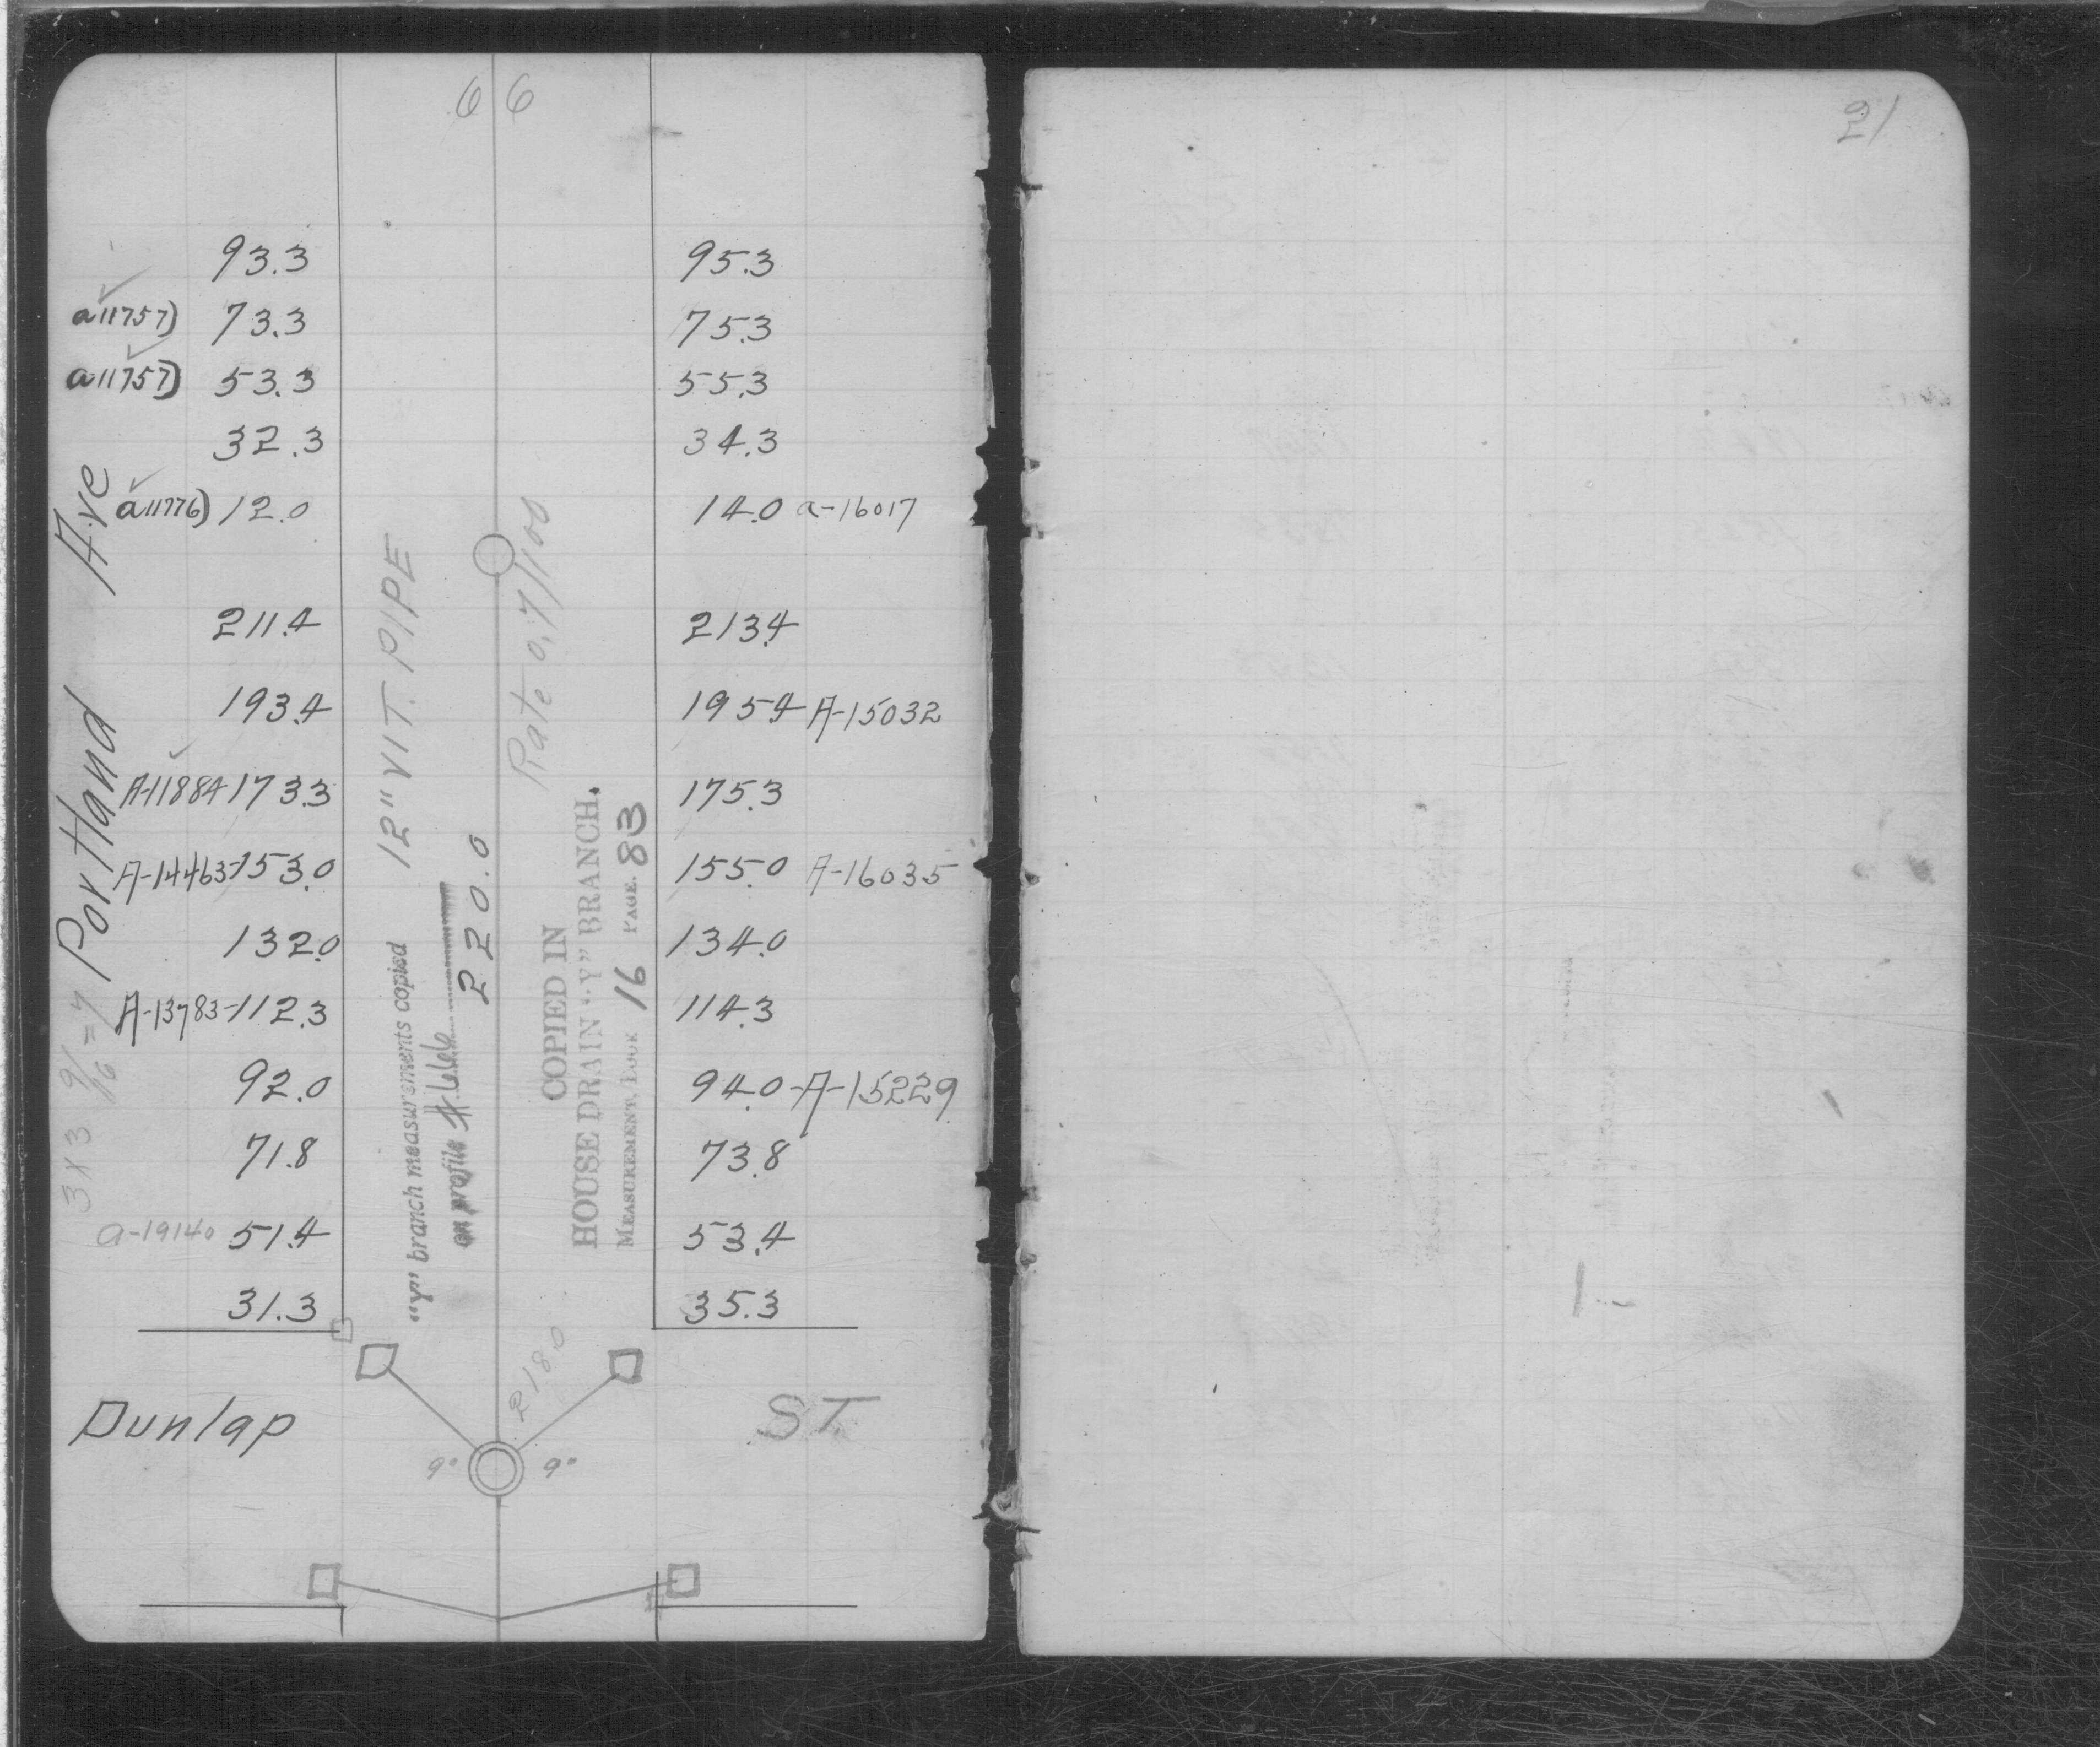 66
21
93.3 95.3
a11757) 73.3 75.3
a11757) 53.3 55.3
32.3 34.3
a11776) 12.0 14.0 a-16017
211.4 213.4
193.4 195.4 A-15032
A-11884 173.3 175.3
A-14463-153.0 155.0 A-16035
132.0 134.0
A-13783-112.3 114.3
92.0 94.0-A-15229
71.8 73.8
a-19140 51.4 53.4
31.3 35.3
Portland Ave
3 x 3 9/16 = 7
12" VIT. PIPE
"Y" branch measurements copied
on profile #666
220.0
Rate 0.7/100
COPIED IN
HOUSE DRAIN "Y" BRANCH.
MEASUREMENT, BOOK 16 PAGE. 83
218.0
Dunlap ST.
9" 9"